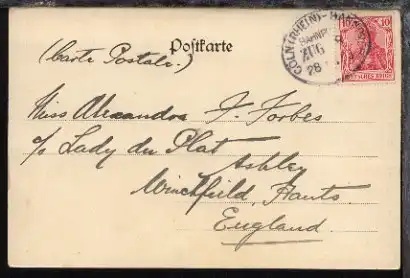 Postkarte
(Carte Postale.)
CÖLN (RHEIN) - HANNOVER
BAHNPOST
ZUG
28
10 10
DEUTSCHES REICH
Miss Alexandra F. Forbes
c/o Lady du Plat
Ashley
Winchfield Hants.
England.